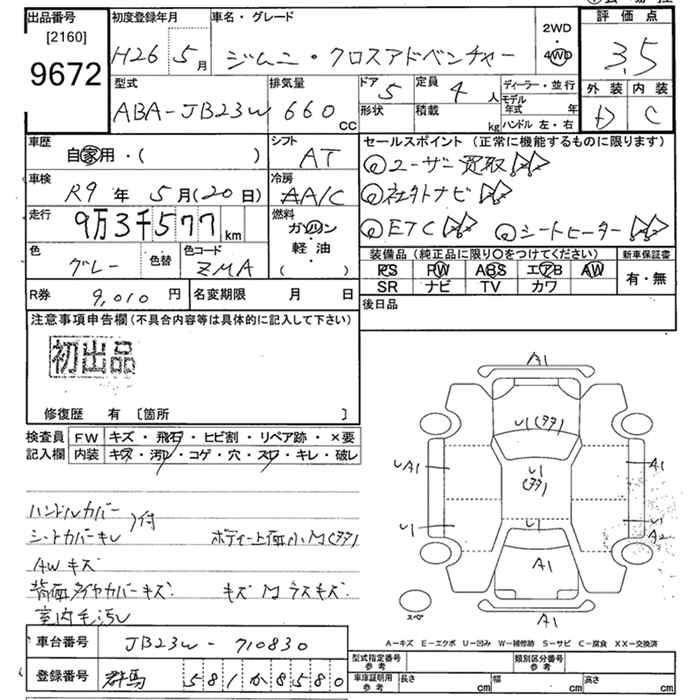 出品番号
[2160]
9672
初度登録年月
H26 5月
車名・グレード
ジムニ・クロスアドベンチャー
2WD
・
4WD
評価点
3.5
外装 内装
D C
型式
ABA-JB23W
排気量
660 cc
ドア
5
形状
定員
4 人
積載
kg
ディーラー・並行
モデル年式 年
ハンドル 左・右
車歴
自家用・( )
シフト
AT
セールスポイント (正常に機能するものに限ります)
ユーザー買取
社外ナビ
ETC シートヒーター
車検
R9 年 5月(20日)
冷房
AA/C
走行
9万3千577km
燃料
ガソリン
軽油
( )
色
グレー
色替
色コード
ZMA
装備品 (純正品に限り○をつけてください)
新車保証書
PS PW ABS エアB AW
SR ナビ TV カワ
有・無
R券 9,010 円
名変期限 月 日
後日品
注意事項申告欄(不具合内容等は具体的に記入して下さい)
初出品
修復歴 有 [箇所 ]
検査員
記入欄
FW キズ・飛石・ヒビ割・リペア跡・×要
内装 キズ・汚レ・コゲ・穴・スレ・キレ・破レ
ハンドルカバー
シートカバーキレ )付
ボディー上面小凹(多々)
AWキズ
背面タイヤカバーキズ キズ 凹 ラスキズ
室内毛汚レ
A1
U1
U1
UA1
A1
U1
U1
A2
A1
A1
スペア
A-キズ E-エクボ U-凹み W-補修跡 S-サビ C-腐食 XX-交換済
車台番号 JB23W-710830
登録番号 群馬 581
型式指定番号
参考
類別区分番号
参考
車庫証明用
参考
長さ cm 幅 cm 高さ cm